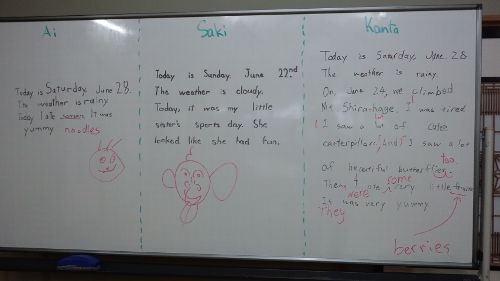 Ai
Today is Saturday. June 28.
The weather is rainy.
Today I ate It was
yummy noodles
Saki
Today is Sunday. June 22nd
The weather is cloudy.
Today, it was my little
sister's sports day. She
looked like she had fun.
Kanta
Today is Saturday. June 28
The weather is rainy.
On June 24, we climbed
Mt. Shirahage. I was tired
I saw a lot of cute
caterpillars. And I saw a lot
of beautiful butterflies too.
Then I ate some very little
berries
It was very yummy.
They were